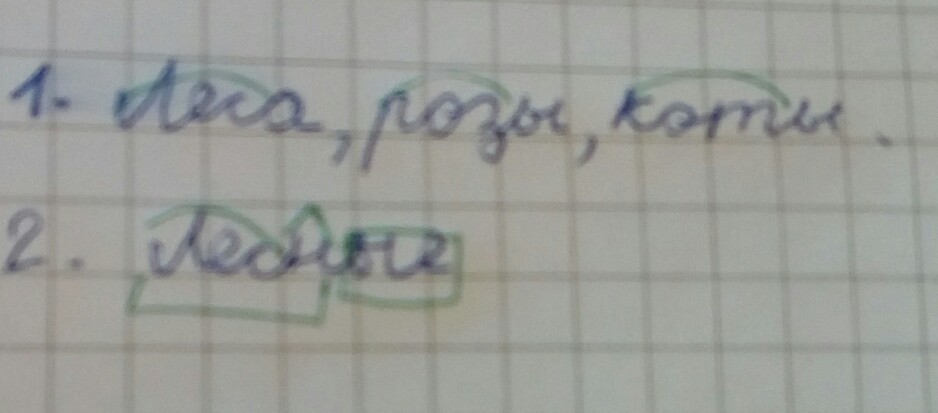 1. Леса, розы, коты.
2. Лесные